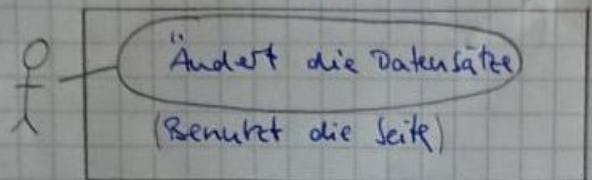 Ändert die Datensätze
(Benutzt die Seite)